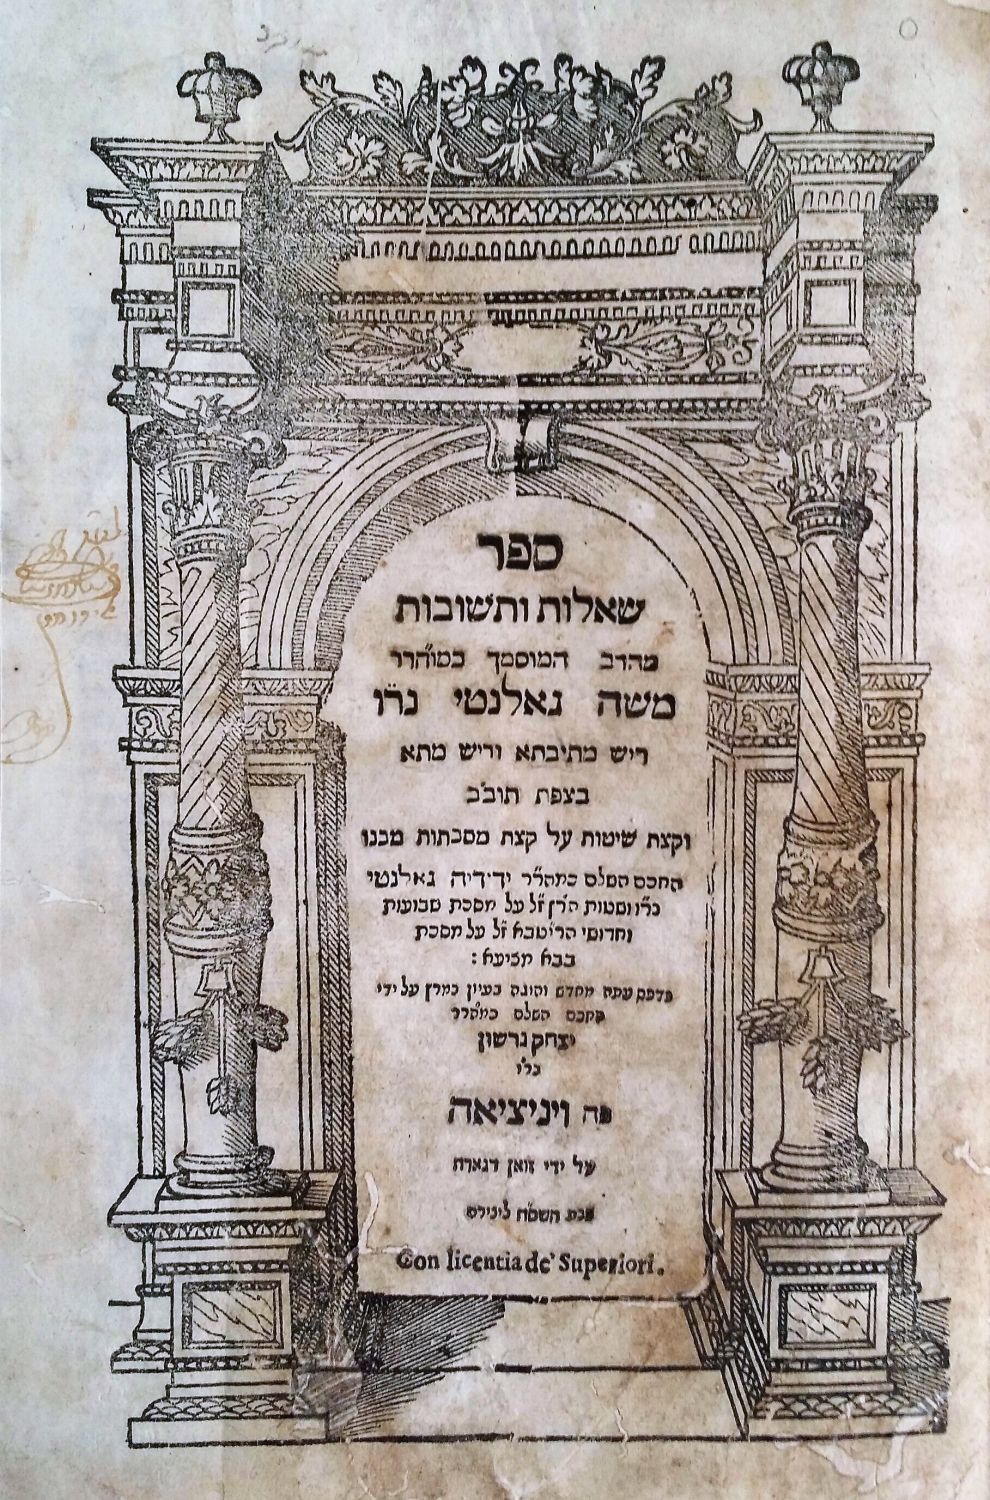 ספר
שאלות ותשובות
מהרב המוסמך כמוהרר
משה גאלנטי נר"ו
ריש מתיבתא וריש מתא
בצפת תוב"ב
וקצת שיטות על קצת מסכתות מבנו
החכם השלם כמה"ר ידידיה גאלנטי
נר"ו ושטות הר"ן ז"ל על מסכת שבועות
וחדושי הריטבא ז"ל על מסכת
בבא מציעא :
נדפס עתה מחדש והוגה בעיון נמרץ על ידי
החכם השלם כמה"רר
יצחק גרשון
נר"ו
פה ויניציאה
על ידי זואן דגארה
שנת השס"ח ליצירה
Con licentia de' Superiori.